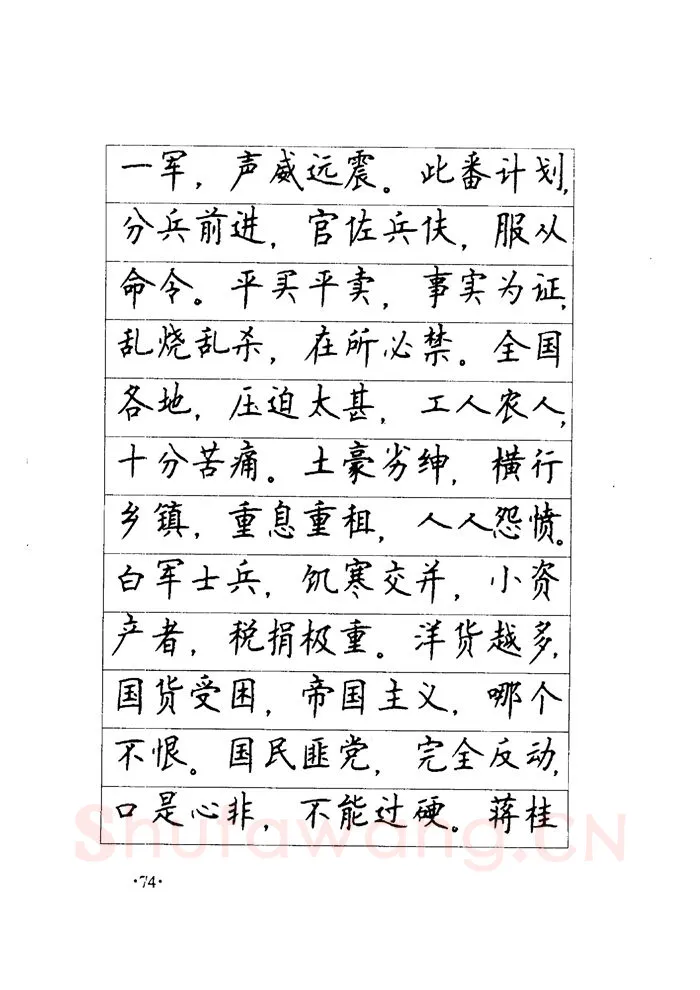 一军，声威远震。此番计划，
分兵前进，官佐兵伕，服从
命令。平买平卖，事实为证，
乱烧乱杀，在所必禁。全国
各地，压迫太甚，工人农人，
十分苦痛。土豪劣绅，横行
乡镇，重息重租，人人怨愤。
白军士兵，饥寒交并，小资
产者，税捐极重。洋货越多，
国货受困，帝国主义，哪个
不恨。国民匪党，完全反动，
口是心非，不能过硬。蒋桂
Shufawang.CN
·74·